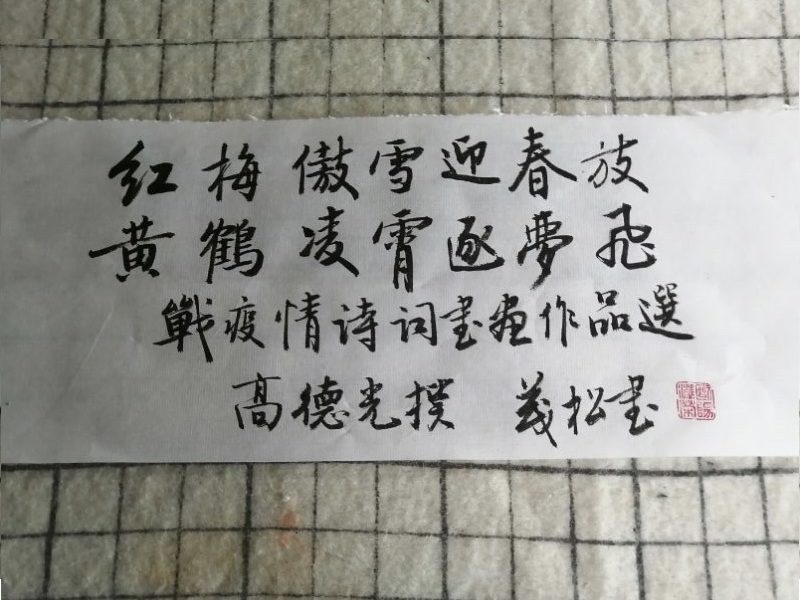 红梅傲雪迎春放
黄鹤凌霄逐夢飛
戰疫情诗词书画作品選
高德光撰 茂松书